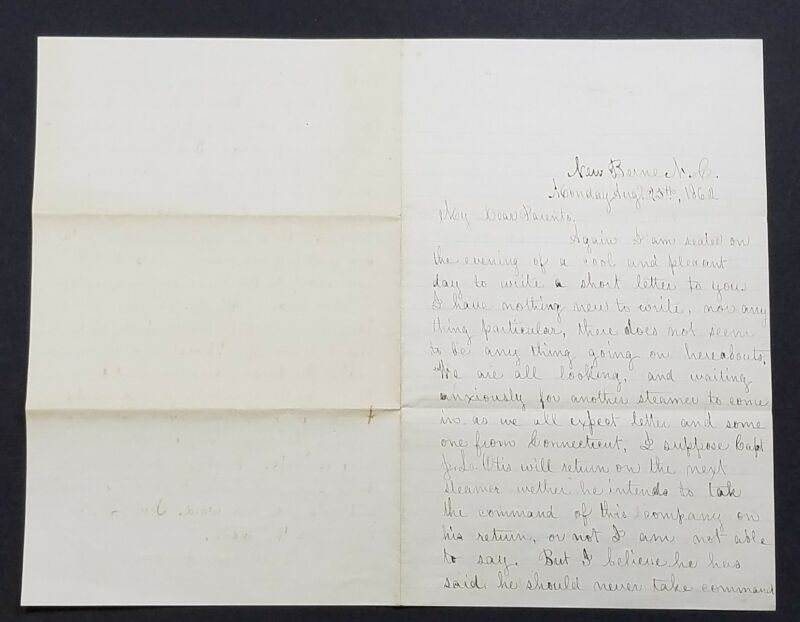 New Berne N. C.
Monday Aug. 25th, 1862
My Dear Parents.
Again I am seated on
the evening of a cool and plesant
day to write a short letter to you.
I have nothing new to write, nor any
thing particular, there does not seem
to be any thing going on hereabouts.
We are all looking, and waiting
anxiously for another steamer to come
in. as we all expect letter and some
one from Connecticut, I suppose Capt
J. L. Otis will return on the next
steamer wether he intends to tak
the command of this company on
his return, or not I am not able
to say. But I believe he has
said he should never take command